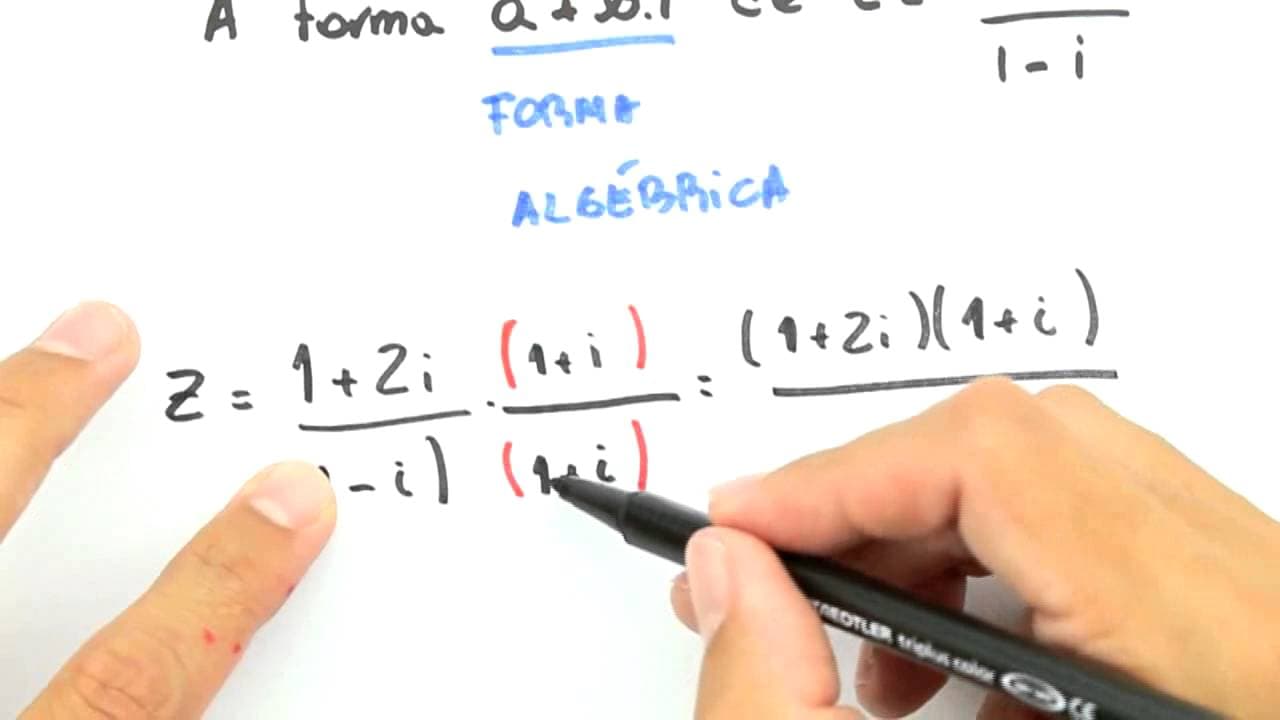 A forma a + b.i de
1 - i
FORMA
ALGÉBRICA
Z = 1+2i . (1+i) = (1+2i)(1+i)
- i) (1+i)
STAEDTLER triplus color CE